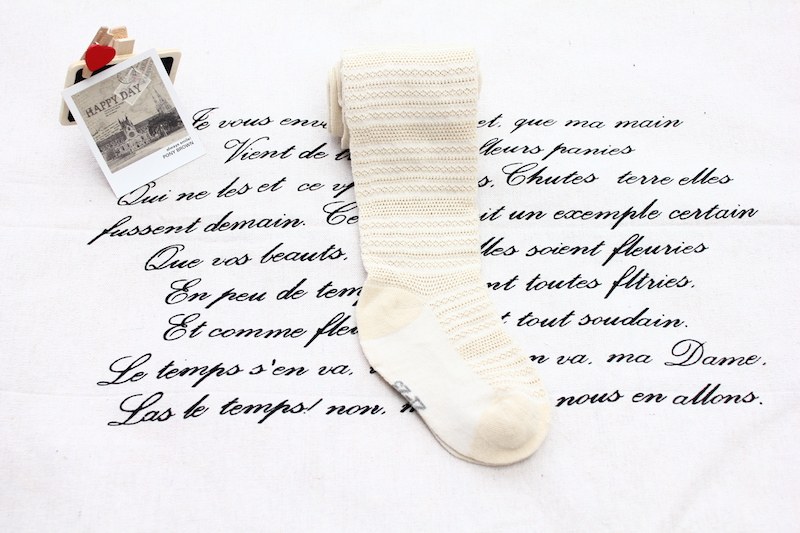 HAPPY DAY
always smile!
PONY BROWN
Je vous env et, que ma main
Vient de leurs panies
Qui ne les et ce s, Chutes terre elles
fussent demain. Ce it un exemple certain
Que vos beauts, lles soient fleuries
En peu de tem nt toutes fltries,
Et comme fleu t tout soudain.
Le temps s'en va, n va, ma Dame,
Las le temps! non, nous en allons.